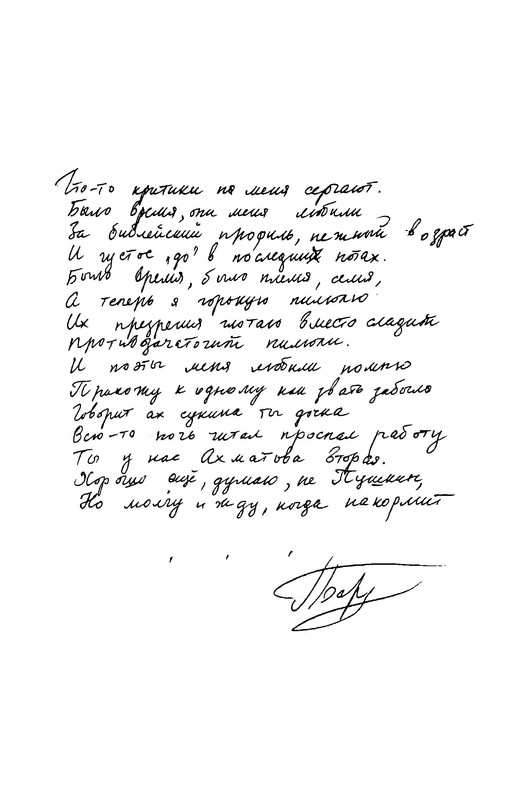 Что-то критики на меня серчают.
Было время, они меня любили
За библейский профиль, нежный возраст
И густое „до” в последних нотах.
Было время, было племя, семя,
А теперь я горькую пилюлю
Их презрения глотаю вместо сладких
Противозачаточных пилюли.
И поэты меня любили помню
Прихожу к одному как звать забыла
Говорит ах сукина ты дочка
Всю-то ночь читал проспал работу
Ты у нас Ахматова Вторая.
Хорошо ещё, думаю, не Пушкин,
Но молчу и жду, когда накормит